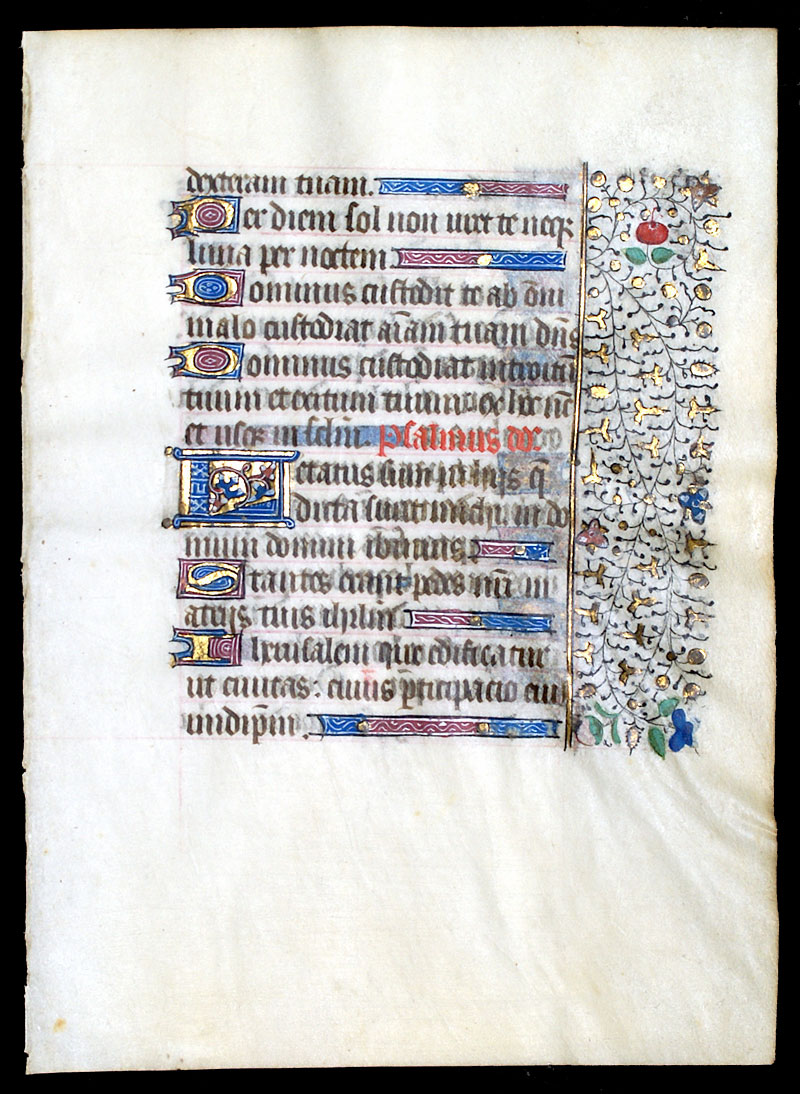 dexteram tuam.
Per diem sol non uret te neq₃
luna per noctem
Dominus custodit te ab om̄i
malo custodiat aīam tuam dn̄s
Dominus custodiat introitū
tuum et exitum tuum ex hoc nūc
et usq₃ in sclm̄. Psalmus dd.
Letatus sum in hijs q̄
dicta sunt michi in do
mum domini ibimus.
Stantes erant pedes nr̄i in
atrijs tuis ihrlm̄
Iherusalem que edificatur
ut ciuitas: cuius p̄ticipacio eius
in idip̄m.